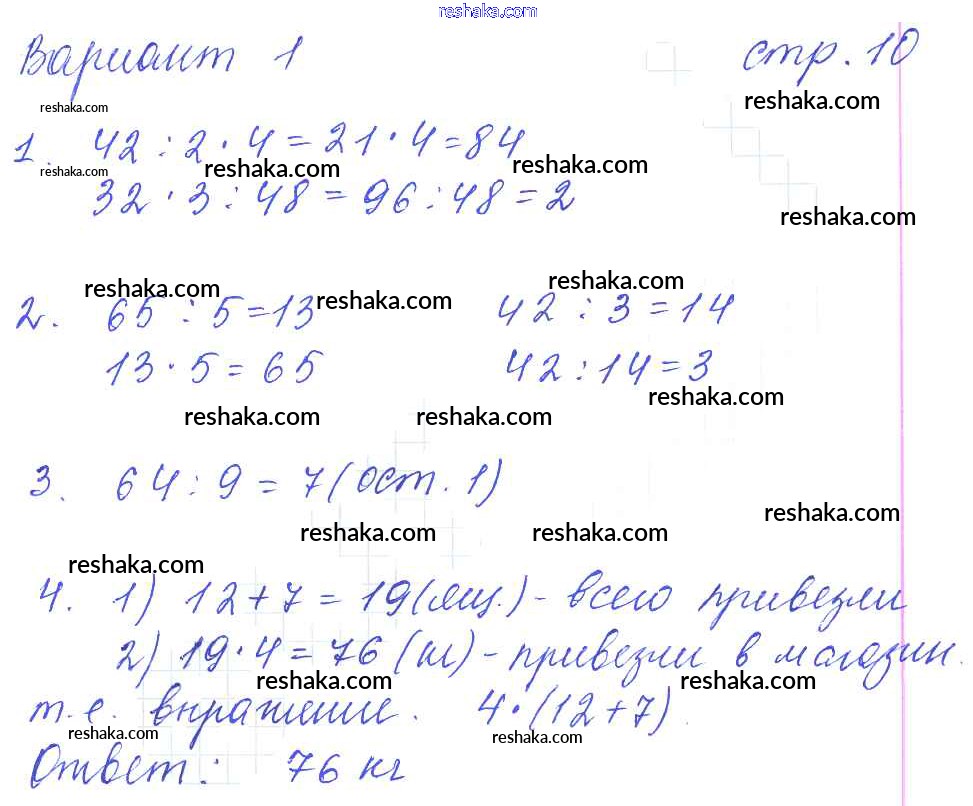 reshaka.com
Вариант 1 стр. 10
reshaka.com reshaka.com
1. 42 : 2 · 4 = 21 · 4 = 84
reshaka.com reshaka.com reshaka.com
32 · 3 : 48 = 96 : 48 = 2
reshaka.com
reshaka.com reshaka.com reshaka.com
2. 65 : 5 = 13 42 : 3 = 14
13 · 5 = 65 42 : 14 = 3
reshaka.com reshaka.com reshaka.com
3. 64 : 9 = 7 (ост. 1)
reshaka.com reshaka.com reshaka.com
reshaka.com
4. 1) 12 + 7 = 19 (ящ.) - всего привезли
2) 19 · 4 = 76 (кг) - привезли в магазин.
reshaka.com reshaka.com
т.е. выражение. 4 · (12 + 7).
reshaka.com reshaka.com
Ответ: 76 кг